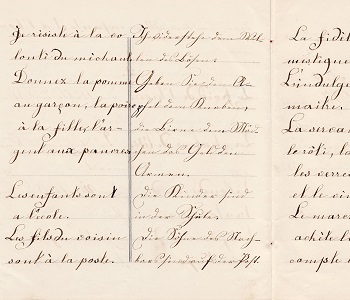 Je résiste à la vo
lonté du méchant
Donnez la pomme
au garçon, la poire
à la fille, l'ar-
gent aux pauvres
Les enfants sont
a l'école.
Les fils du voisin
sont à la poste.
Ich widerstehe dem Wil-
len des Bösen.
Geben Sie den A-
pfel dem Knaben,
die Birne dem Mäd-
chen das Geld den
Armen.
Die Kinder sind
in der Schule.
Die Söhne des Nach-
bars sind auf der Post.
La fidél
L'indulge
maître.
La servan
le rôti, la
les verres
et le vin
Le marc
achète l
compte d